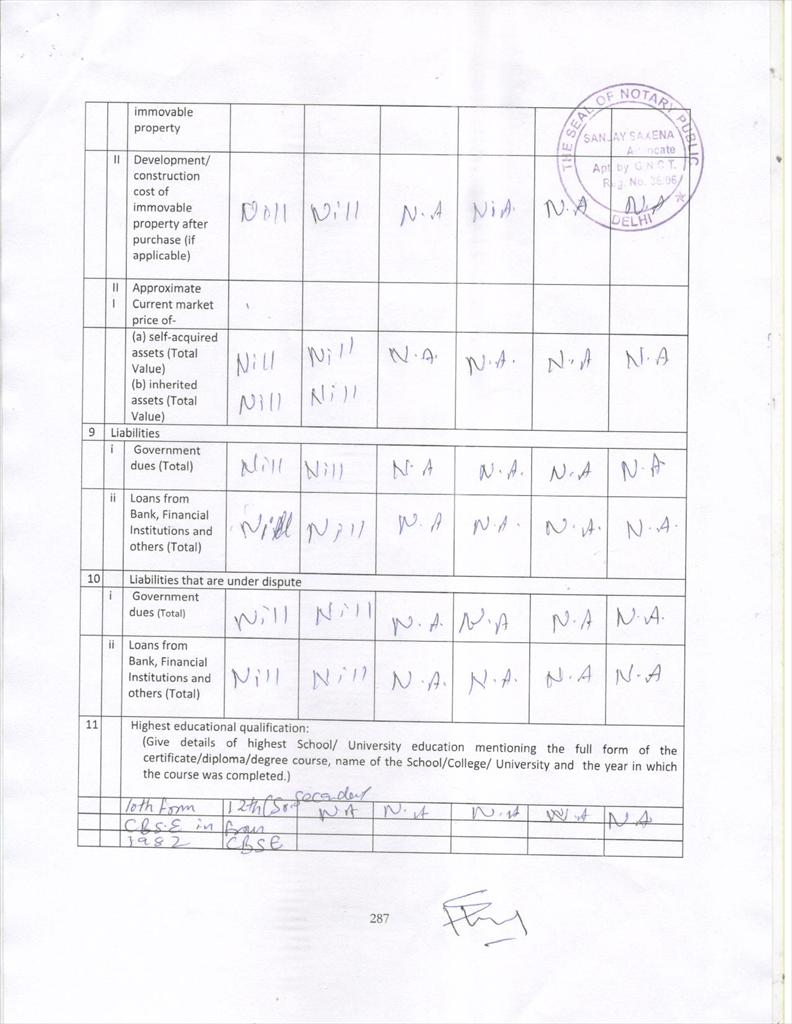 THE SEAL OF NOTARY PUBLIC
SANJAY SAXENA
Advocate
Apt. by G.N.C.T.
DELHI
immovable
property
II Development/
construction
cost of
immovable
property after
purchase (if
applicable)
Nill Nill N.A N.A. N.A N.A
II Approximate
I Current market
price of-
(a) self-acquired
assets (Total
Value)
Nill Nill N.A. N.A. N.A N.A
(b) inherited
assets (Total
Value)
Nill Nill
9 Liabilities
i Government
dues (Total)
Nill Nill N.A N.A. N.A N.A
ii Loans from
Bank, Financial
Institutions and
others (Total)
Nill Nill N.A N.A. N.A. N.A.
10 Liabilities that are under dispute
i Government
dues (Total)
Nill Nill N.A. N.A N.A N.A.
ii Loans from
Bank, Financial
Institutions and
others (Total)
Nill Nill N.A. N.A. N.A N.A
11 Highest educational qualification:
(Give details of highest School/ University education mentioning the full form of the
certificate/diploma/degree course, name of the School/College/ University and the year in which
the course was completed.)
10th from 12th N A N.A N.A N.A N A
CBSE in from
1982 CBSE
287